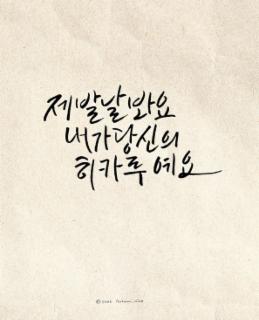 제발날봐요
내가당신의
히카루예요